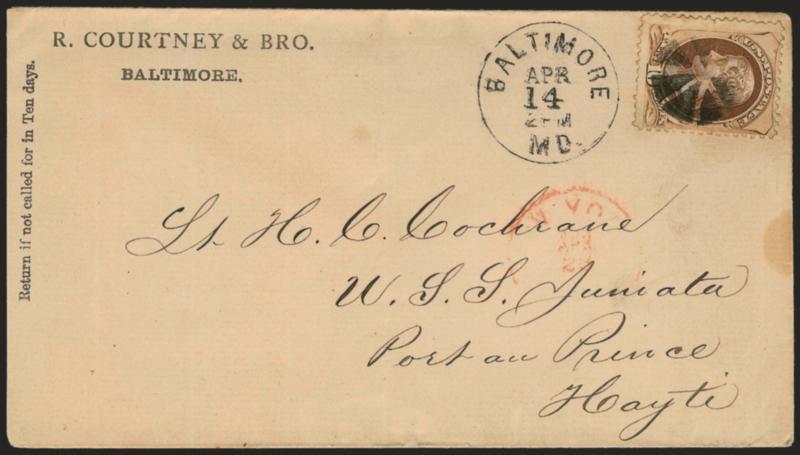 R. COURTNEY & BRO.
BALTIMORE.
Return if not called for in Ten days.
BALTIMORE
APR
14
2 PM
MD.
Lt. H. C. Cochrane
U. S. S. Juniata
Port au Prince
Hayti